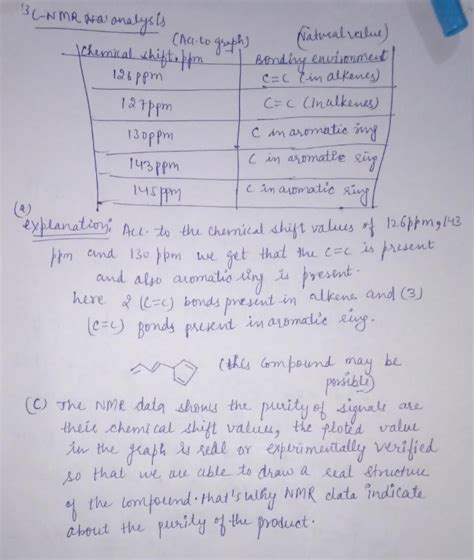 13C-NMR analysis
(Acc. to graph) (Natural value)
Chemical shift, ppm Bonding environment
126 ppm C=C (in alkenes)
127 ppm C=C (In alkenes)
130 ppm C in aromatic ring
143 ppm C in aromatic ring
145 ppm C in aromatic ring
(a)
explanation: Acc. to the chemical shift values of 126 ppm, 143
ppm and 130 ppm we get that the C=C is present
and also aromatic ring is present.
here 2 (C=C) bonds present in alkene and (3)
(C=C) bonds present in aromatic ring.
(this compound may be
possible)
(C) The NMR data shows the purity of signals are
their chemical shift values, the ploted value
in the graph is real or experimentally verified
so that we are able to draw a real structure
of the compound. that's why NMR data indicate
about the purity of the product.